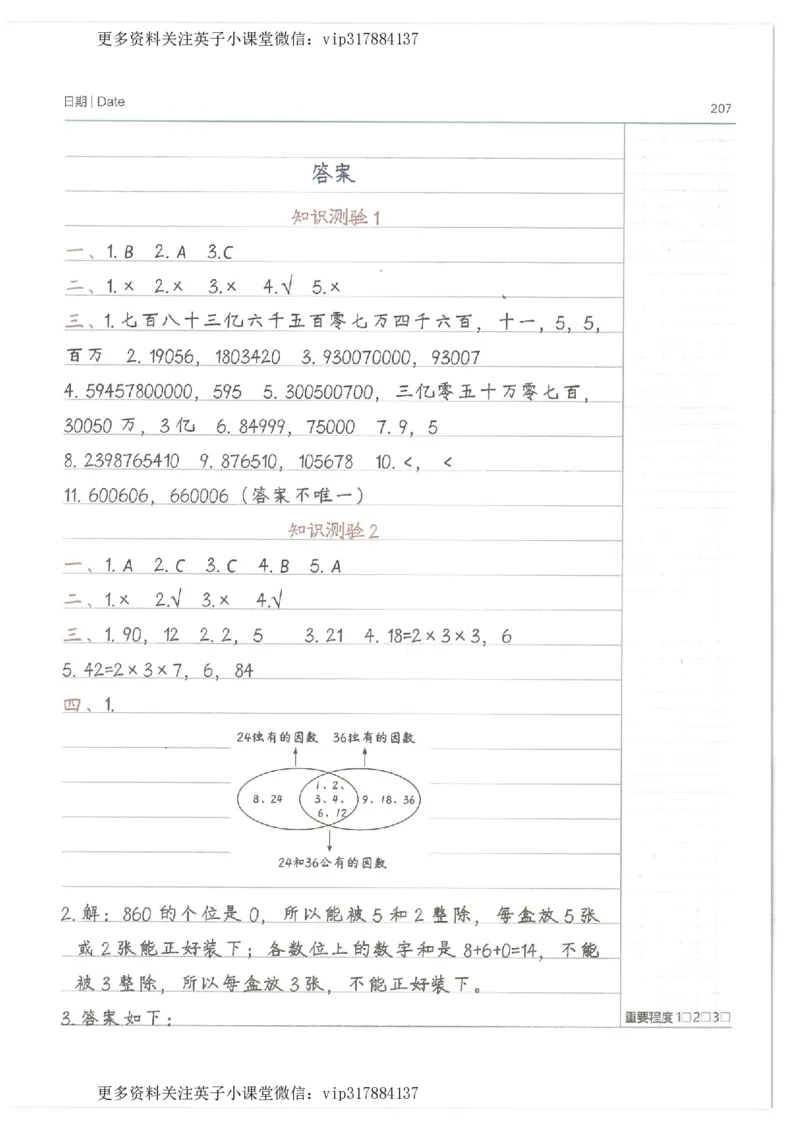 更多资料关注英子小课堂微信：vip317884137
日期 | Date
207
答案
知识测验1
一、1. B 2. A 3. C
二、1. × 2. × 3. × 4. √ 5. ×
三、1. 七百八十三亿六千五百零七万四千六百，十一，5，5，
百万 2. 19056，1803420 3. 930070000，93007
4. 59457800000，595 5. 300500700，三亿零五十万零七百，
30050 万，3 亿 6. 84999，75000 7. 9，5
8. 2398765410 9. 876510，105678 10. <，<
11. 600606，660006（答案不唯一）
知识测验2
一、1. A 2. C 3. C 4. B 5. A
二、1. × 2. √ 3. × 4. √
三、1. 90，12 2. 2，5 3. 21 4. 18=2×3×3，6
5. 42=2×3×7，6，84
四、1.
24独有的因数 36独有的因数
1、2、
8、24 3、4、 9、18、36
6、12
24和36公有的因数
2. 解：860 的个位是 0，所以能被 5 和 2 整除，每盒放 5 张
或 2 张能正好装下；各数位上的数字和是 8+6+0=14，不能
被 3 整除，所以每盒放 3 张，不能正好装下。
3. 答案如下：
重要程度 1□2□3□
更多资料关注英子小课堂微信：vip317884137